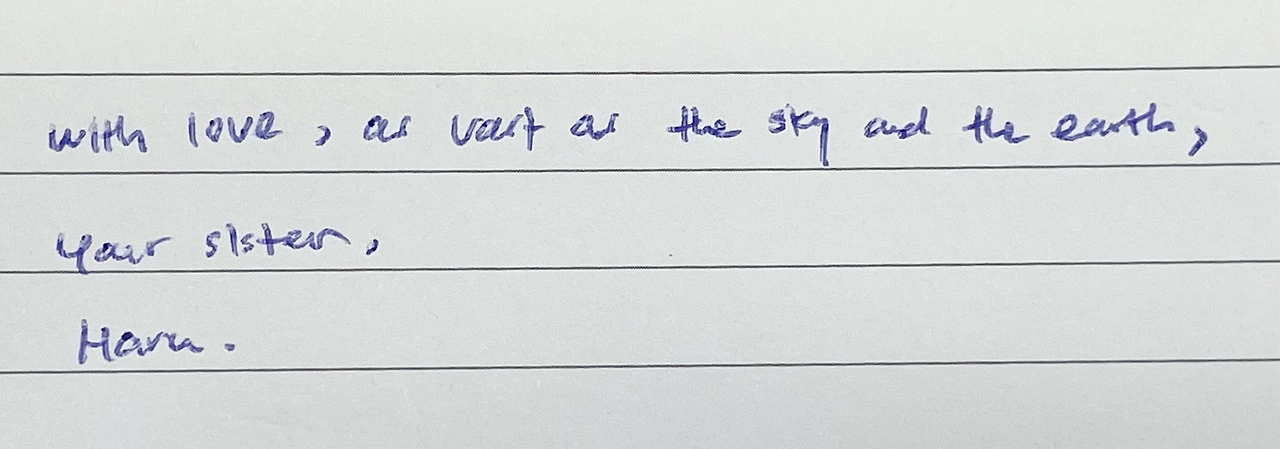 with love, as vast as the sky and the earth,
your sister,
Haru.